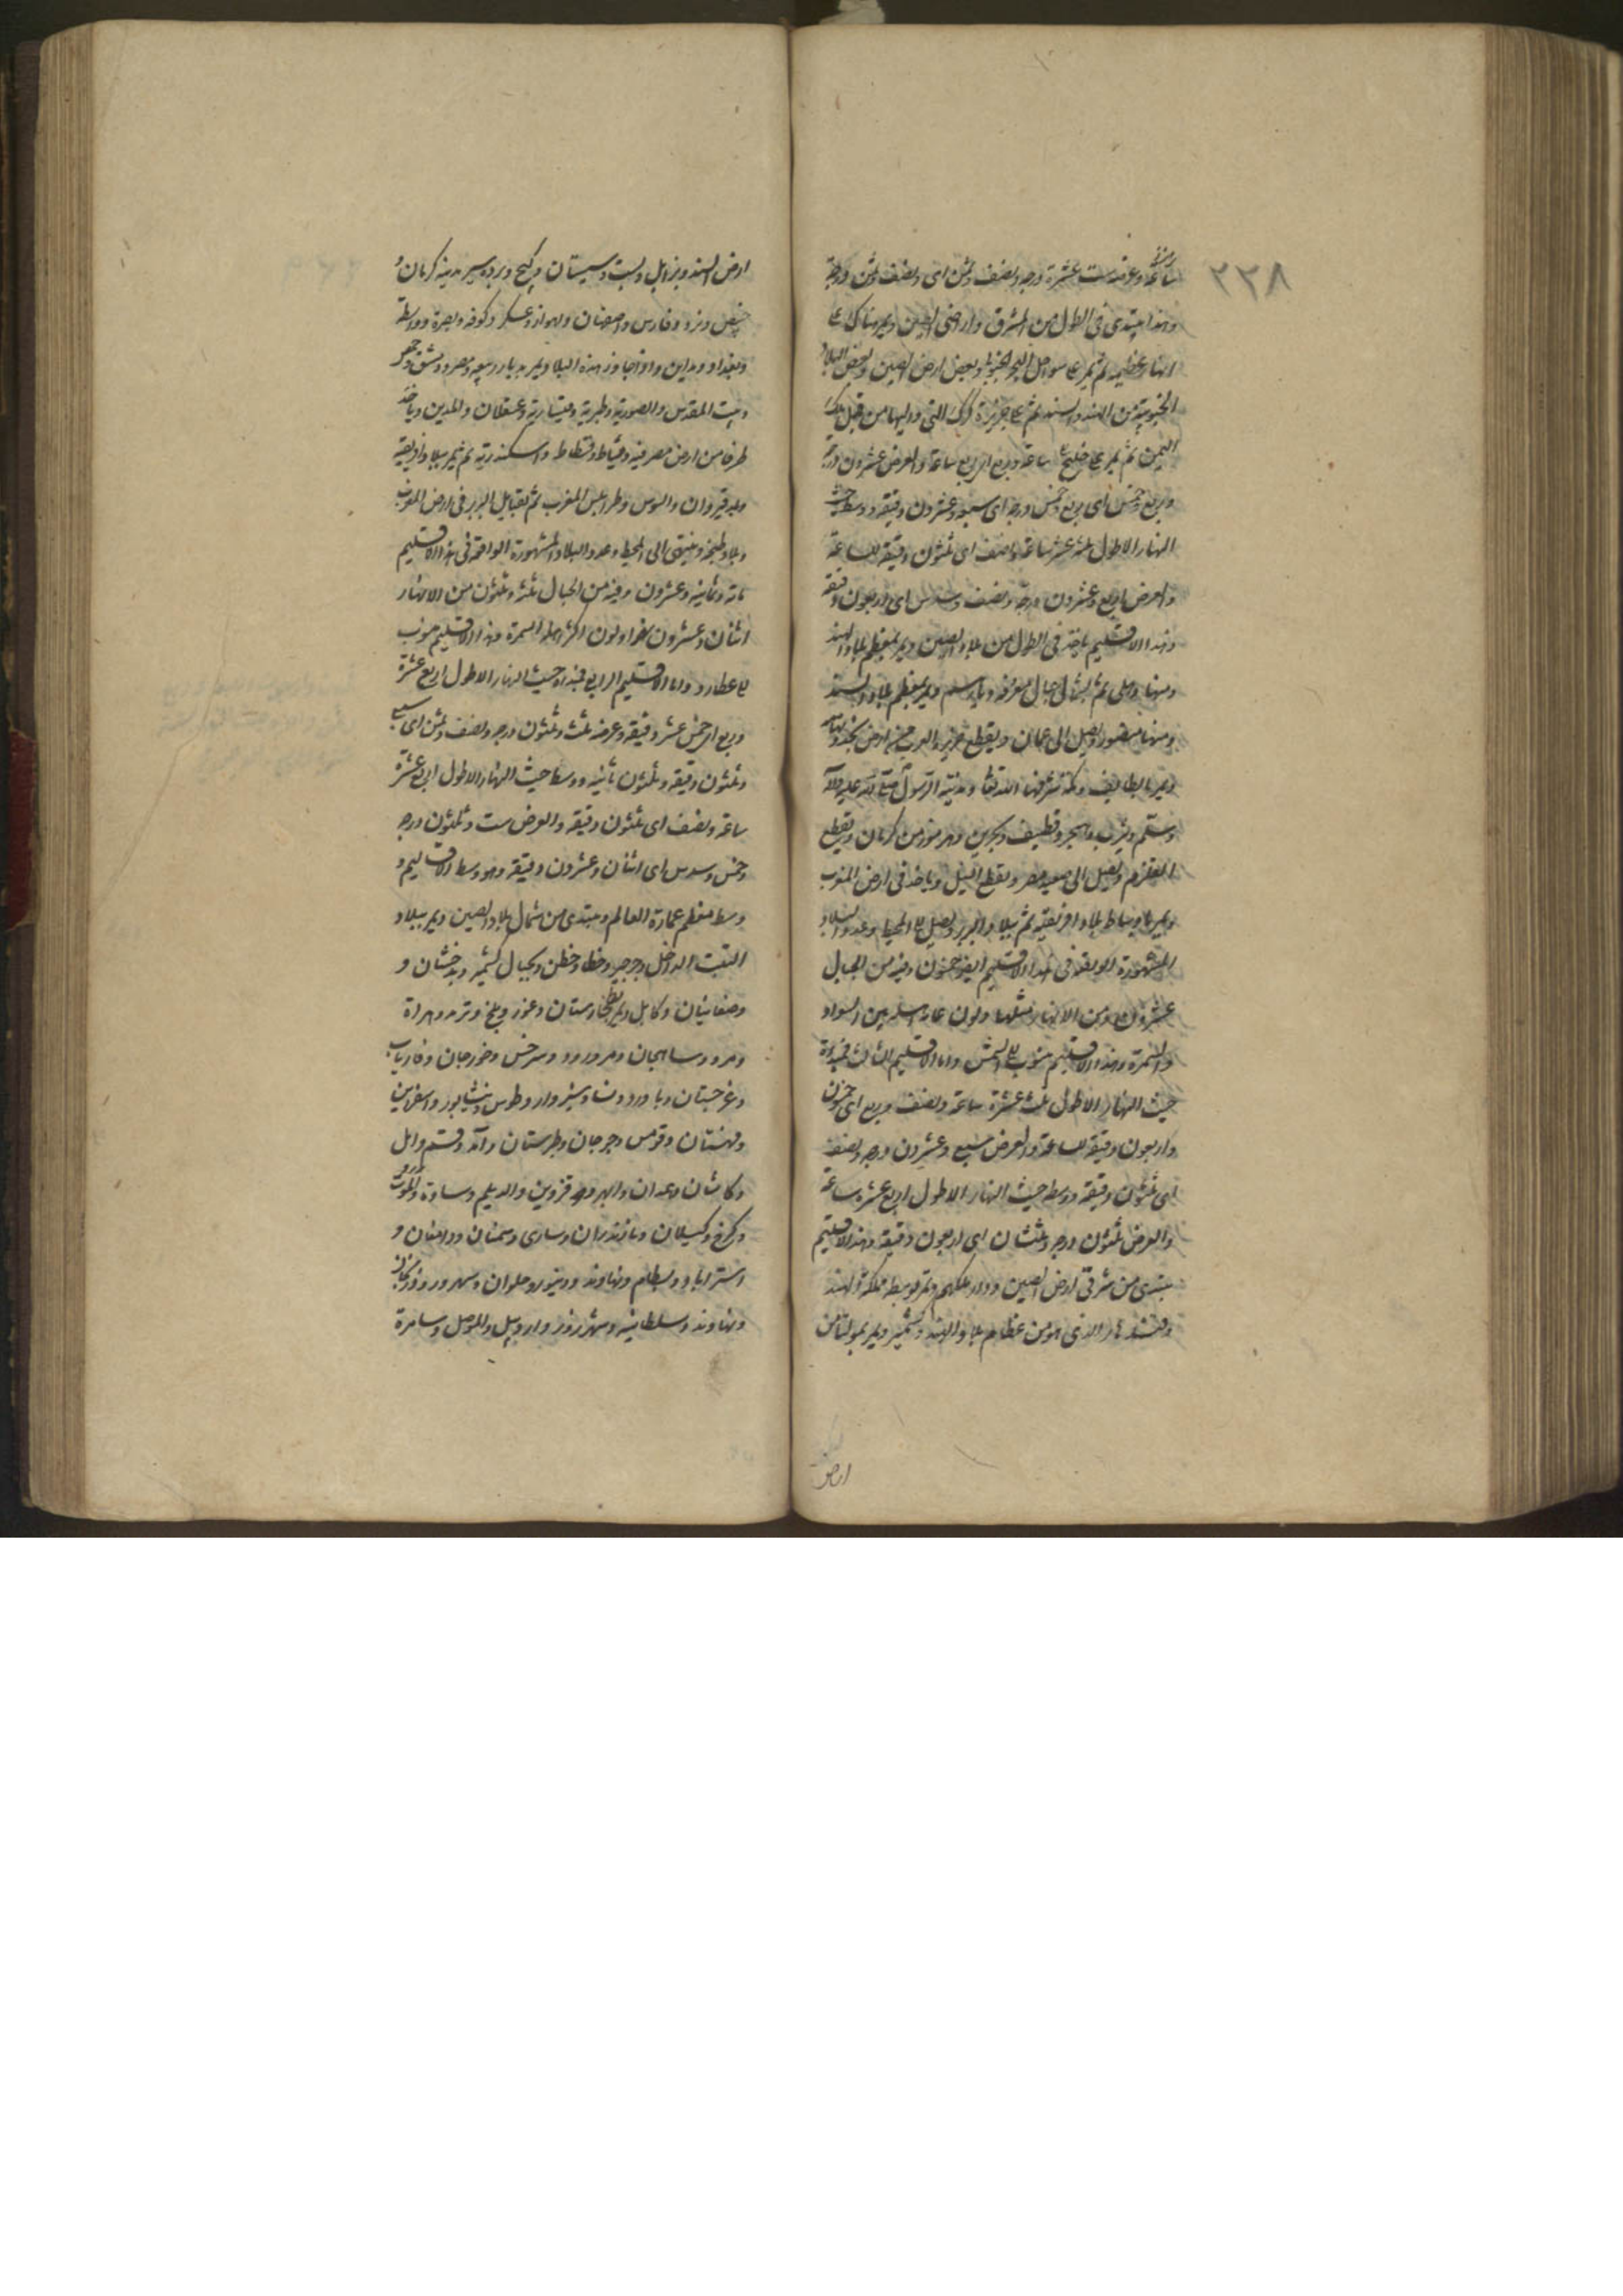 ٢٢٨
ساعة وعرضه ست عشرة درجة ونصف وثمن اى ونصف وثمن درجة
وهذا يبتدى فى الطول من المشرق واراضى الصين ويمر هناك على
انهار عظيمة ثم يمر على سواحل البحر الجنوبى وبعض ارض الصين وبعض البلاد
الجنوبية من الهند والسند ثم على جزيرة كرك التى
اليمن ثم يمر على خليج ساعة وربع اى ربع ساعة والعرض عشرون درجة
وربع وخمس اى ربع وخمس درجة اى سبعة وعشرون دقيقة ووسطه حيث
النهار الاطول ثلثة عشر ساعة ونصف اى ثلثون دقيقة للساعة
والعرض اربع وعشرون درجة ونصف وسدس اى اربعون دقيقة
وهذا الاقليم ياخذ فى الطول من بلاد الصين ويمر بمعظم بلاد الهند
ومنها دهلى ثم بشمال جبال معرفة ويمر بمعظم بلاد السند
ومنها منصورة ويصل الى عمان ويقطع جزيرة العرب من ارض نجد وتهامه
ويمر بالطائف ومكة شرفها الله تعالى ومدينة الرسول صلى الله عليه وآله
وسلم ويثرب وهجر وقطيف وبحرين وهرموز من كرمان ويقطع
القلزم ويصل الى صعيد مصر ويقطع النيل وياخذ فى ارض المغرب
ويمر على اوساط بلاد افريقية ثم ببلاد البربر ويصل الى المحيط وعدد البلاد
المشهورة الواقعة فى هذا الاقليم ايضا خمسون وفيه من الجبال
عشرون ومن الانهار مثلها ولون عامة اهله بين السواد
والسمرة وهذا الاقليم منسوب الى الشمس واما الاقليم الثالث فمبداه
حيث النهار الاطول ثلث عشرة ساعة ونصف وربع اى خمس
واربعون دقيقة للساعة والعرض سبع وعشرون درجة ونصف
اى ثلثون دقيقة ووسطه حيث النهار الاطول اربع عشرة ساعة
والعرض ثلثون درجة وثلثان اى اربعون دقيقة وهذا الاقليم
يبتدى من شرقى ارض الصين ودار ملكهم ويمر بوسط مملكة الهند
وقندهار الذى هو من عظام بلاد الهند وكشمير ويمر بمولتان من
ارض
ارض السند وبزابل وبست وسيستان وكيج وبردسير مدينة كرمان و
خبيص ويزد وفارس واصفهان واهواز وعسكر وكوفة وبصرة وواسط
وبغداد ومداين واذا تجاوز هذه البلاد يمر بديار ربيعه ومضر ودمشق وحمص
وبيت المقدس والصورية وطبرية وقيسارية وعسقلان والمدين وياخذ
طرفا من ارض مصر فيه دمياط وفسطاط واسكندرية ثم يمر ببلاد افريقية
وبلد قيروان والسوس وطرابلس المغرب ثم بقبايل البربر فى ارض المغرب
وبلاد طنجة وينتهى الى المحيط وعدد البلاد المشهورة الواقعة فى هذا الاقليم
مائة وثمانية وعشرون وفيه من الجبال ثلثة وثلثون من الانهار
اثنان وعشرون نهرا ولون اكثر اهله السمرة وهذا الاقليم منسوب
الى عطارد واما الاقليم الرابع فمبداه حيث النهار الاطول اربع عشرة
وربع اى خمس عشر دقيقة وعرضه ثلث وثلثون درجة ونصف وثمن اى سبع
وثلثون دقيقة وثلثون ثانية ووسطه حيث النهار الاطول اربع عشرة
ساعة ونصف اى ثلثون دقيقة والعرض ست وثلثون درجة
وخمس وسدس اى اثنان وعشرون دقيقة وهو وسط الاقاليم و
وسط معظم عمارة العالم ومبتدى من شمال بلاد الصين ويمر ببلاد
التبت الداخل وجرجير وخطا وختن وبجبال كشمير وبدخشان و
وصغانيان وكابل ويمر بطخارستان وغور وبلخ وترمد وهراة
ومرو وشاهجان ومرورود وسرخس وجوزجان وفارياب
وغرجستان وباورد ونسا وسبزوار وطوس ونيشابور واسفراين
وقهستان وقومس وجرجان وطبرستان وآمد وقم وامل
وكاشان وهمدان وابهر وقزوين والديلم وساوة والموت
وكرخ وكيلان ومازندران وسارى وسمنان ودامغان و
استراباد وبسطام ونهاوند ودينور وحلوان وسهرورد وزنجان
ونهاوند وسلطانية وشهرزور واردبيل والموصل وسامرة